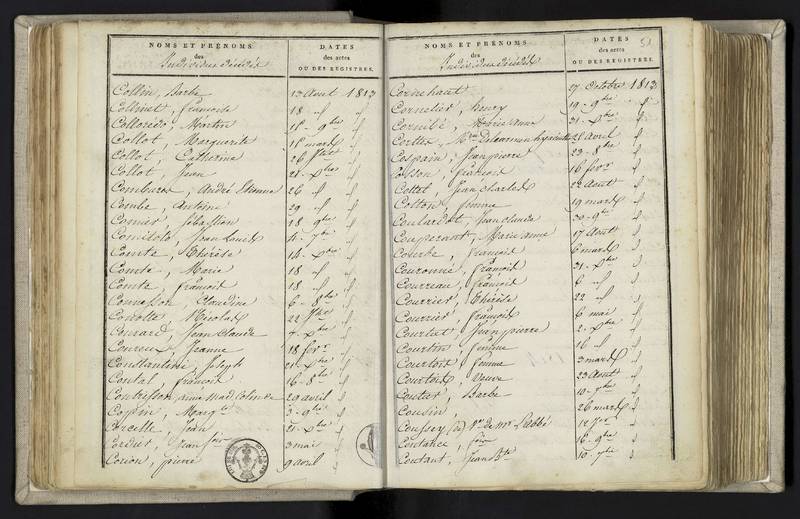 NOMS ET PRÉNOMS
des
Individus décédés
DATES
des actes
OU DES REGISTRES.
Collin, Barbe 13 Aout 1813
Collinet, françois 18 " "
Colloredo, Martin 18 - 9bre "
Collot, Marguerite 18 mars "
Collot, Catherine 26 "
Collot, Jean 21 - Xbre "
André Etienne 26 " "
Combe, Antoine 29 " "
Comier, Sébastien 18 9bre "
Jean Louis 4 - 7bre "
Comte, Thérèse 14 - "
Comte, Marie 18 " "
Comte, françois 18 " "
Claudine 6 - 8bre "
Nicolas 22 "
Consard, Jean Claude 7 - Xbre "
Jeanne 18 fevr "
Constantine, Joseph 21 - Xbre "
Contal, françois 16 - 8bre "
29 avril "
Copin, Margte 3 - 9bre "
Corcelle, Jean 21 - Xbre "
Cordier, Jean fois 3 mai "
Corion, pierre 9 avril "
NOMS ET PRÉNOMS
des
Individus décédés
DATES
des actes
OU DES REGISTRES.
51
Cornehaut 27 Octobre 1813
Cornelier, Henry 19 - 9bre "
Cornibé, Marie Anne 31 - Xbre "
28 Avril "
Cospain, Jean pierre 23 - 8bre "
Cosson, françois 16 fevr "
Cottet, Jean charles 22 Aout "
Cotton, femme 19 mars "
Coulardot, Jean claude 30 - 9bre "
Couperant, Marie anne 17 Aout "
Courbe, françois 6 mars "
Couronne, françois 31 - Xbre "
Courreau, françois 6 " "
Courrier, Thérèse 22 " "
Courrier, françois 6 mai "
Courtet, Jean pierre 2 - Xbre "
Courtin, femme 16 " "
Courtois, femme 3 mars "
Courtois, Veuve 23 Aout "
Coutier, Barbe 10 - 7bre "
Cousin, 26 mars "
Coussey, de Mr Labbé 12 "
Coutance, 16 - 9bre "
Coutant, Jean Bte 10 - 7bre "